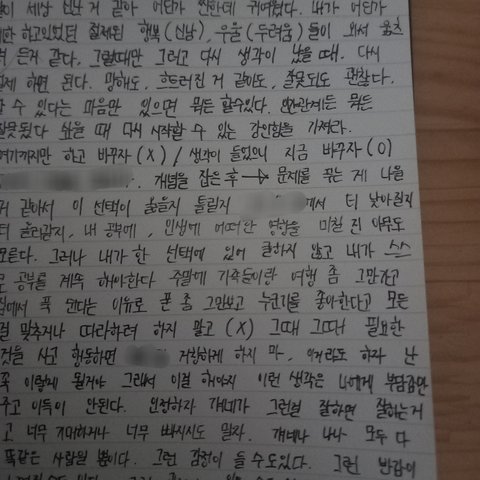 세상 신난 거 같아 어딘가 짠한데 귀여웠다. 내가 어딘가
하고있었던 절제된 행복(신남), 우울(두려움)들이 와서 움츠
든거 같다. 그럴때만 그러고 다시 생각이 났을 때. 다시
하면 된다. 망해도, 흐트러진 거 같아도, 잘못되도 괜찮다.
할 수 있다는 마음만 있으면 뭐든 할수있다. 인간관계든 뭐든
잘못됬다 싶을 때 다시 시작할 수 있는 강인함을 가져라.
여기까지만 하고 바꾸자 (X) / 생각이 들었으니 지금 바꾸자 (O)
개념을 잡은 후 → 문제를 푸는 게 나을
거 같아서 이 선택이 옳을지 틀릴지 에서 더 낮아질지
더 올라갈지, 내 공부에, 인생에 어떠한 영향을 미칠 진 아무도
모른다. 그러나 내가 한 선택에 있어 탓하지 않고 내가 스스
로 공부를 계속 해야한다 주말에 가족들이랑 여행 좀 그만가고
집에서 푹 쉰다는 이유로 폰 좀 그만보고 누군가를 좋아한다고 모든
걸 맞추거나 따라하려 하지 말고 (X) 그때 그때 필요한
것을 사고 행동하면 거창하게 하지 마, 이거라도 하자 난
꼭 이렇게 될거야 그래서 이걸 해야지 이런 생각은 나에게 부담감만
주고 이득이 안된다. 인정하자 걔네가 그런걸 잘하면 잘하는거
고 너무 기대하거나 너무 빠지지도 말자. 걔네나 나나 모두 다
똑같은 사람일 뿐이다. 그런 감정이 들 수도있다. 그런 반감이